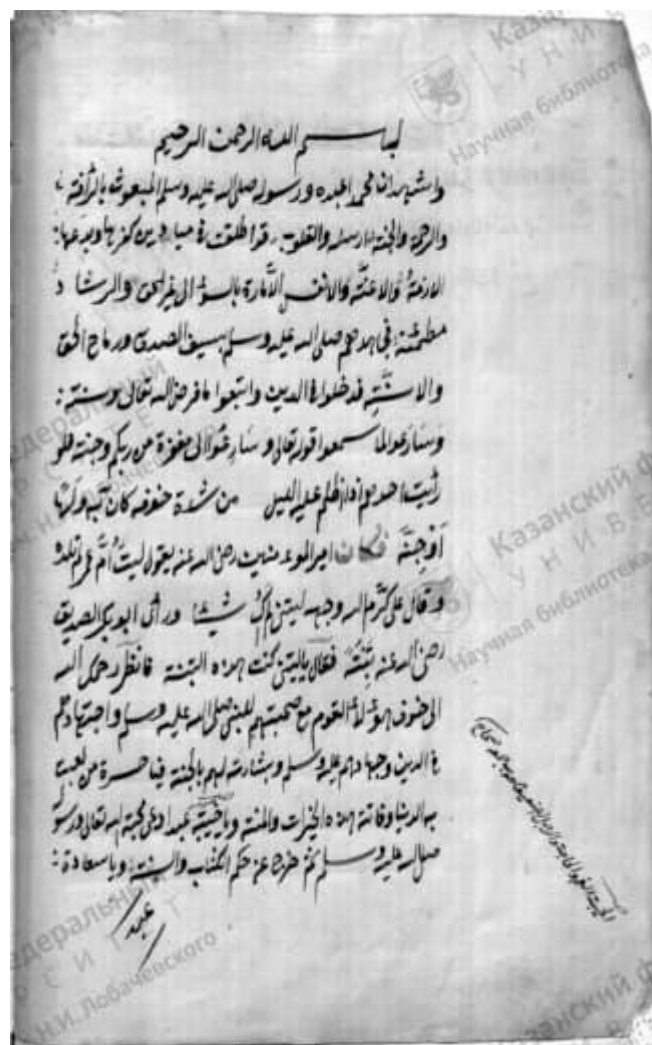 بسم الله الرحمن الرحيم
واشهد ان محمدا عبده ورسوله صلى الله عليه وسلم المبعوث بالرأفة
والرحمة والجنة والقلوب قد اطلقت في ميادين كفرها وبدعها
الازمة والاعنة والانفس الأمارة بالسوء الى غير الحق والرشاد
مطمئنة صلى الله عليه وسلم بسيف الصدق ورماح الحق
والاسنة فدخلوا في الدين واتبعوا ما فرض الله تعالى وسنته
وسارعوا لما سمعوا قوله تعالى وسارعوا الى مغفرة من ربكم وجنة فلو
رأيت احدهم اذا اظلم عليه الليل من شدة خوفه كان به ولها
او جنة فكان امير المؤمنين رضى الله عنه يقول ليت أم عمر لم تلد
وقال على كرم الله وجهه ليتنى لم أك شيئا ورأى ابو بكر الصديق
رضى الله عنه تبنة فقال ياليتنى كنت هذه التبنة فانظر رحمك الله
الى خوف هؤلاء القوم مع صحبتهم للنبى صلى الله عليه وسلم واجتهادهم
في الدين وجهادهم عليه وسلم وبشارته لهم بالجنة فيا حسرة من لعبت
به الدنيا وفاتته هذه الخيرات والمنة ويا خيبة عبد ادعى محبة الله تعالى ورسوله
صلى الله عليه وسلم ثم خرج عن حكم الكتاب والسنة ويا سعادة
عبد
Казанский ф
УНИВЕ
Научная библиотека
едеральный
РСИТЕТ
м. Н.И. Лобачевского
Казанский ф
УНИВЕ
Научная библиотека
едеральный
РСИТЕТ
м. Н.И. Лобачевского
Казанский ф